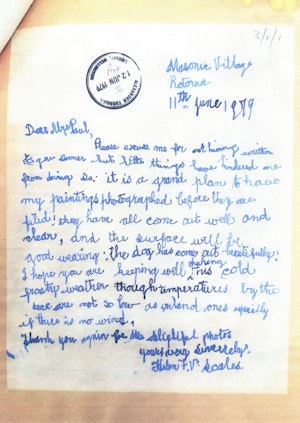 3/1/1
ALEXANDER TURNBULL LIBRARY WELLINGTON
12 JUN 1979
Masonic Village
11th June 1979
Dear Mrs Paul,
Please excuse me for not having written
to you sooner but little things have hindered me
from doing so: it is a grand plan to have
my paintings photographed before they are
filed! they have all come out well and
clear, and the surface will be
good wearing: the dog has come out beautifully!
I hope you are keeping well, this cold
frosty weather though temperatures by the
sea are not so low as inland ones especily
if there is no wind.
Thank you again for the photos
yours very sincerely,
Helen F.V. Scales.